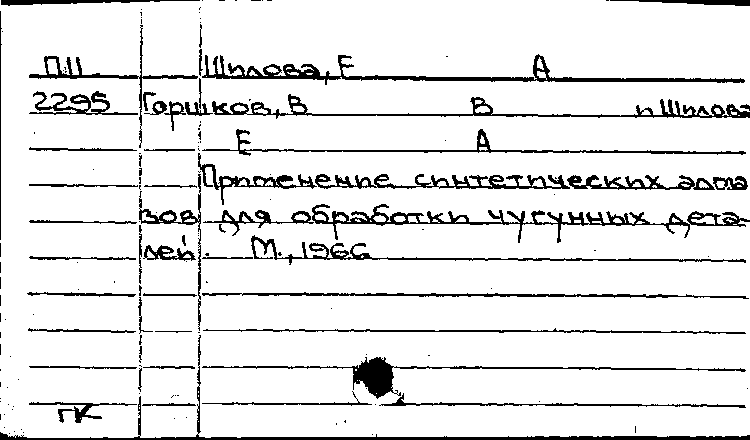 П11 Шилова, Е А
2295 Горшков, В В и Шилова
Е А
Применение синтетических алма
зов для обработки чугунных дета-
лей. М., 1966
ГК